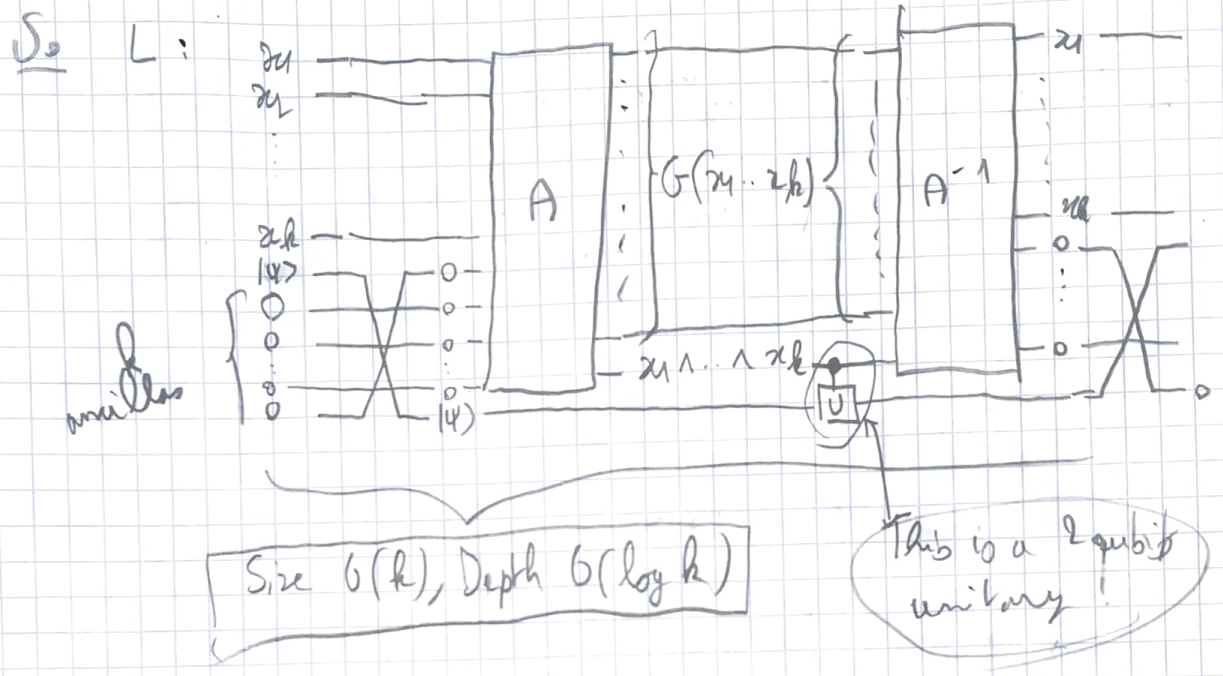 So L :
x1
x2
xk
|ψ>
0
0
0
0
ancillas
0
0
0
0
|ψ>
A
G(x1 .. xk)
x1 ∧ .. ∧ xk
U
A⁻¹
x1
xk
0
0
0
Size O(k), Depth O(log k)
This is a 2 qubits
unitary !